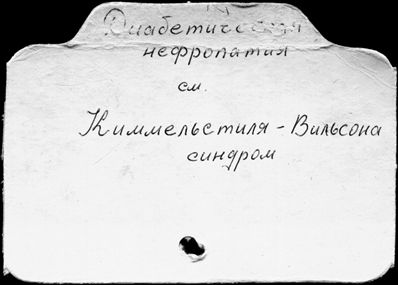 Диабетическая
нефропатия
см.
Киммельстиля - Вильсона
синдром